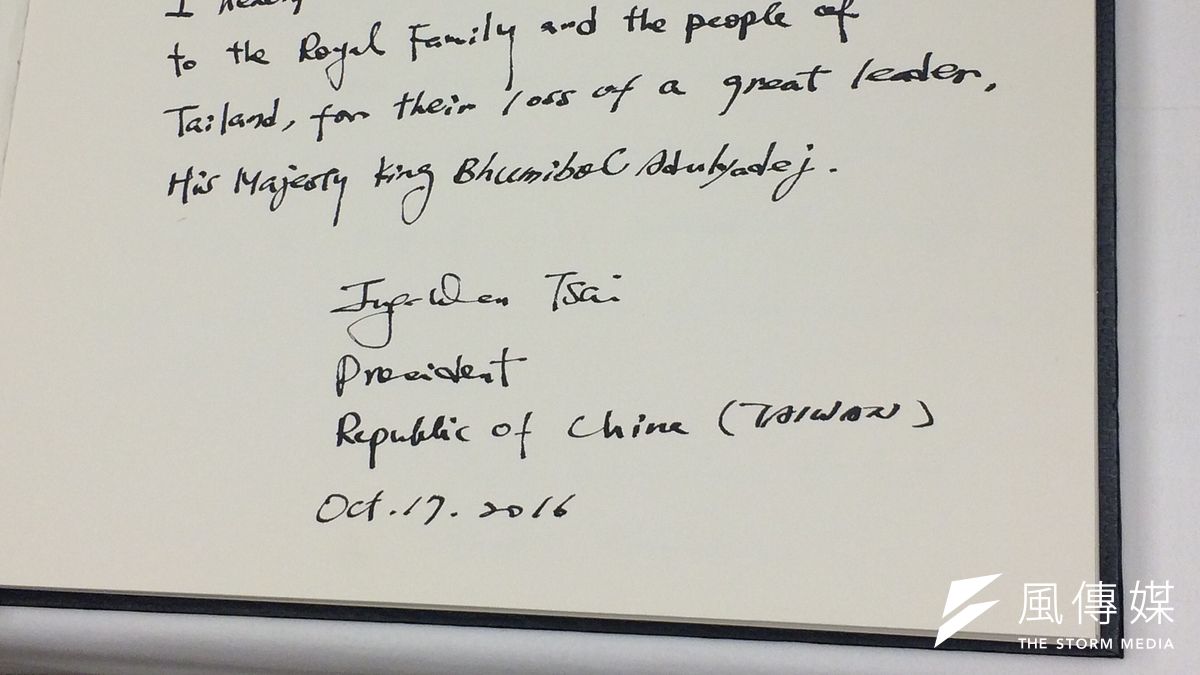 I
to the Royal Family and the people of
Tailand, for their loss of a great leader,
His Majesty King Bhumibol Adulyadej.
Ing-Wen Tsai
President
Republic of China (TAIWAN)
Oct. 17. 2016
風傳媒
THE STORM MEDIA